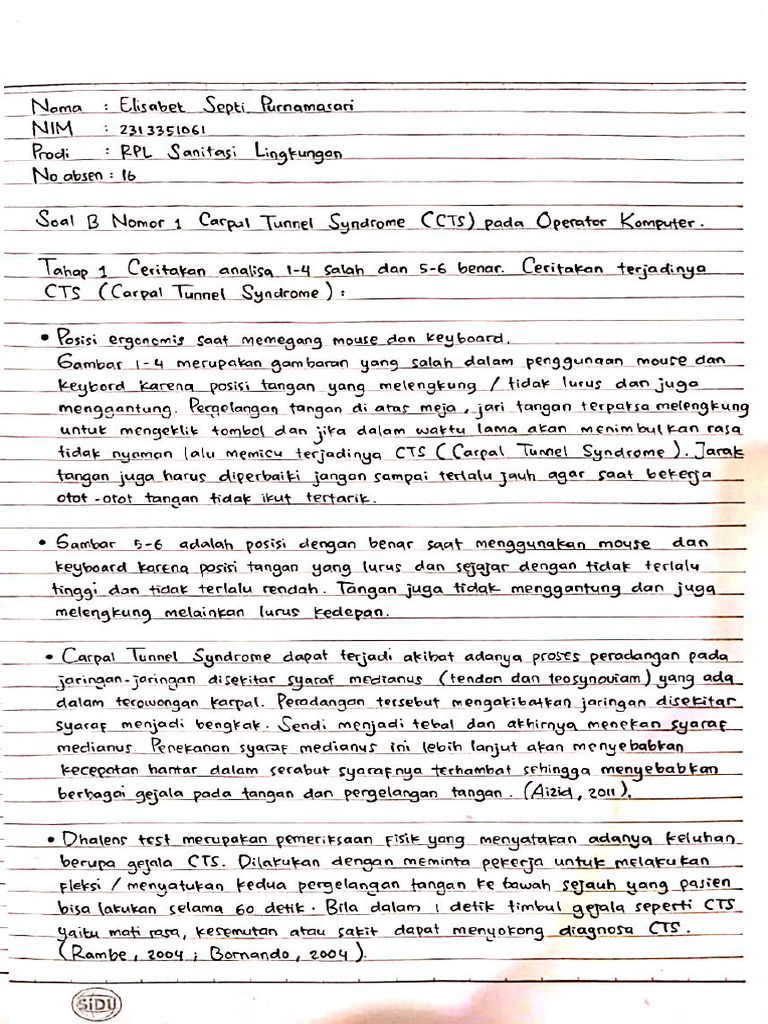 Nama : Elisabet Septi Purnamasari
NIM : 2313351061
Prodi : RPL Sanitasi Lingkungan
No absen : 16
Soal B Nomor 1 Carpal Tunnel Syndrome (CTS) pada Operator Komputer.
Tahap 1 Ceritakan analisa 1-4 salah dan 5-6 benar. Ceritakan terjadinya
CTS (Carpal Tunnel Syndrome) :
• Posisi ergonomis saat memegang mouse dan keyboard.
Gambar 1-4 merupakan gambaran yang salah dalam penggunaan mouse dan
keybord karena posisi tangan yang melengkung / tidak lurus dan juga
menggantung. Pergelangan tangan di atas meja, jari tangan terpaksa melengkung
untuk mengeklik tombol dan jika dalam waktu lama akan menimbulkan rasa
tidak nyaman lalu memicu terjadinya CTS (Carpal Tunnel Syndrome). Jarak
tangan juga harus diperbaiki jangan sampai terlalu jauh agar saat bekerja
otot-otot tangan tidak ikut tertarik.
• Gambar 5-6 adalah posisi dengan benar saat menggunakan mouse dan
keyboard karena posisi tangan yang lurus dan sejajar dengan tidak terlalu
tinggi dan tidak terlalu rendah. Tangan juga tidak menggantung dan juga
melengkung melainkan lurus kedepan.
• Carpal Tunnel Syndrome dapat terjadi akibat adanya proses peradangan pada
jaringan-jaringan disekitar syaraf medianus (tendon dan teosynoviam) yang ada
dalam terowongan karpal. Peradangan tersebut mengakibatkan jaringan disekitar
syaraf menjadi bengkak. Sendi menjadi tebal dan akhirnya menekan syaraf
medianus. Penekanan syaraf medianus ini lebih lanjut akan menyebabkan
kecepatan hantar dalam serabut syarafnya terhambat sehingga menyebabkan
berbagai gejala pada tangan dan pergelangan tangan. (Aizid, 2011).
• Dhalens test merupakan pemeriksaan fisik yang menyatakan adanya keluhan
berupa gejala CTS. Dilakukan dengan meminta pekerja untuk melakukan
fleksi / menyatukan kedua pergelangan tangan ke bawah sejauh yang pasien
bisa lakukan selama 60 detik. Bila dalam 1 detik timbul gejala seperti CTS
yaitu mati rasa, kesemutan atau sakit dapat menyokong diagnosa CTS.
(Rambe, 2004 ; Bornando, 2004).
SiDU